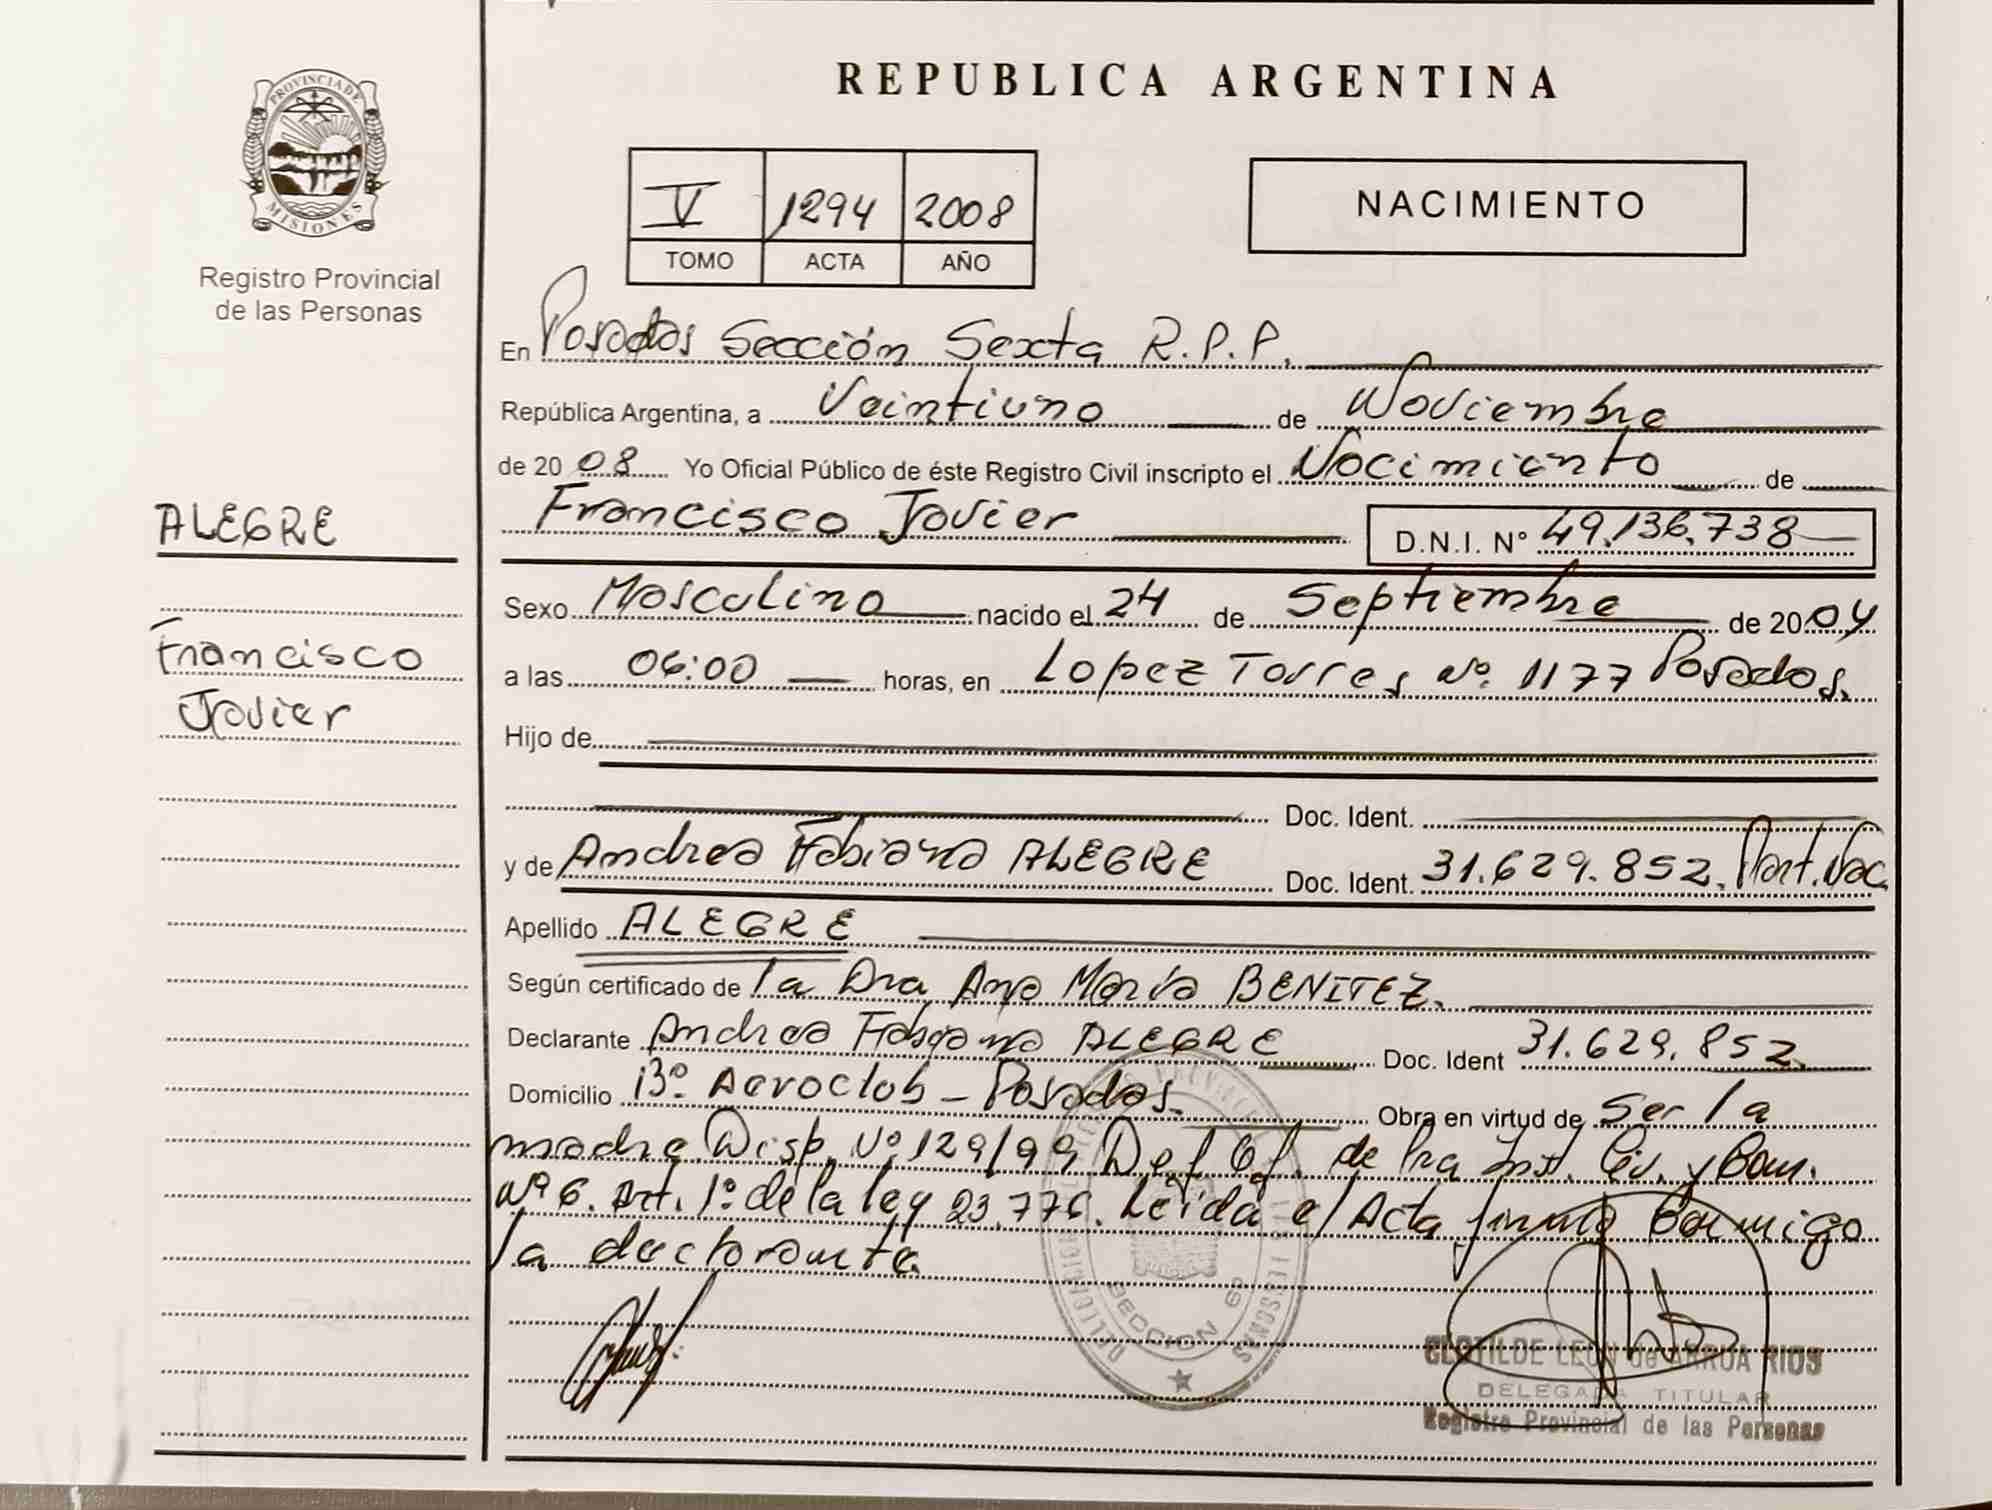 REPUBLICA ARGENTINA
PROVINCIA DE
MISIONES
Registro Provincial
de las Personas
V 1294 2008
TOMO ACTA AÑO
NACIMIENTO
En Posadas Sección Sexta R.P.P.
República Argentina, a Veintiuno de Noviembre
de 2008 Yo Oficial Público de éste Registro Civil inscripto el Nacimiento de
Francisco Javier D.N.I. Nº 49.136.738
ALEGRE
Francisco
Javier
Sexo Masculino nacido el 24 de Septiembre de 2004
a las 06:00 horas, en Lopez Torres Nº. 1177 Posadas.
Hijo de
Doc. Ident.
y de Andrea Fabiana ALEGRE Doc. Ident. 31.629.852.
Apellido ALEGRE
Según certificado de la Dra Ana María BENITEZ.
Declarante Andrea Fabiana ALEGRE Doc. Ident 31.629.852.
Domicilio Bº Aeroclub - Posadas. Obra en virtud de Ser la
madre Disp. Nº 129/99 Def Of. de Pra Inst. Civ. y Com.
Nº 6. Art. 1º de la ley 23.776. Leída el Acta firma Conmigo
la declarante.
SECCION 6ª
CLOTILDE LEON de ARRUA RIOS
DELEGADA TITULAR
Registro Provincial de las Personas